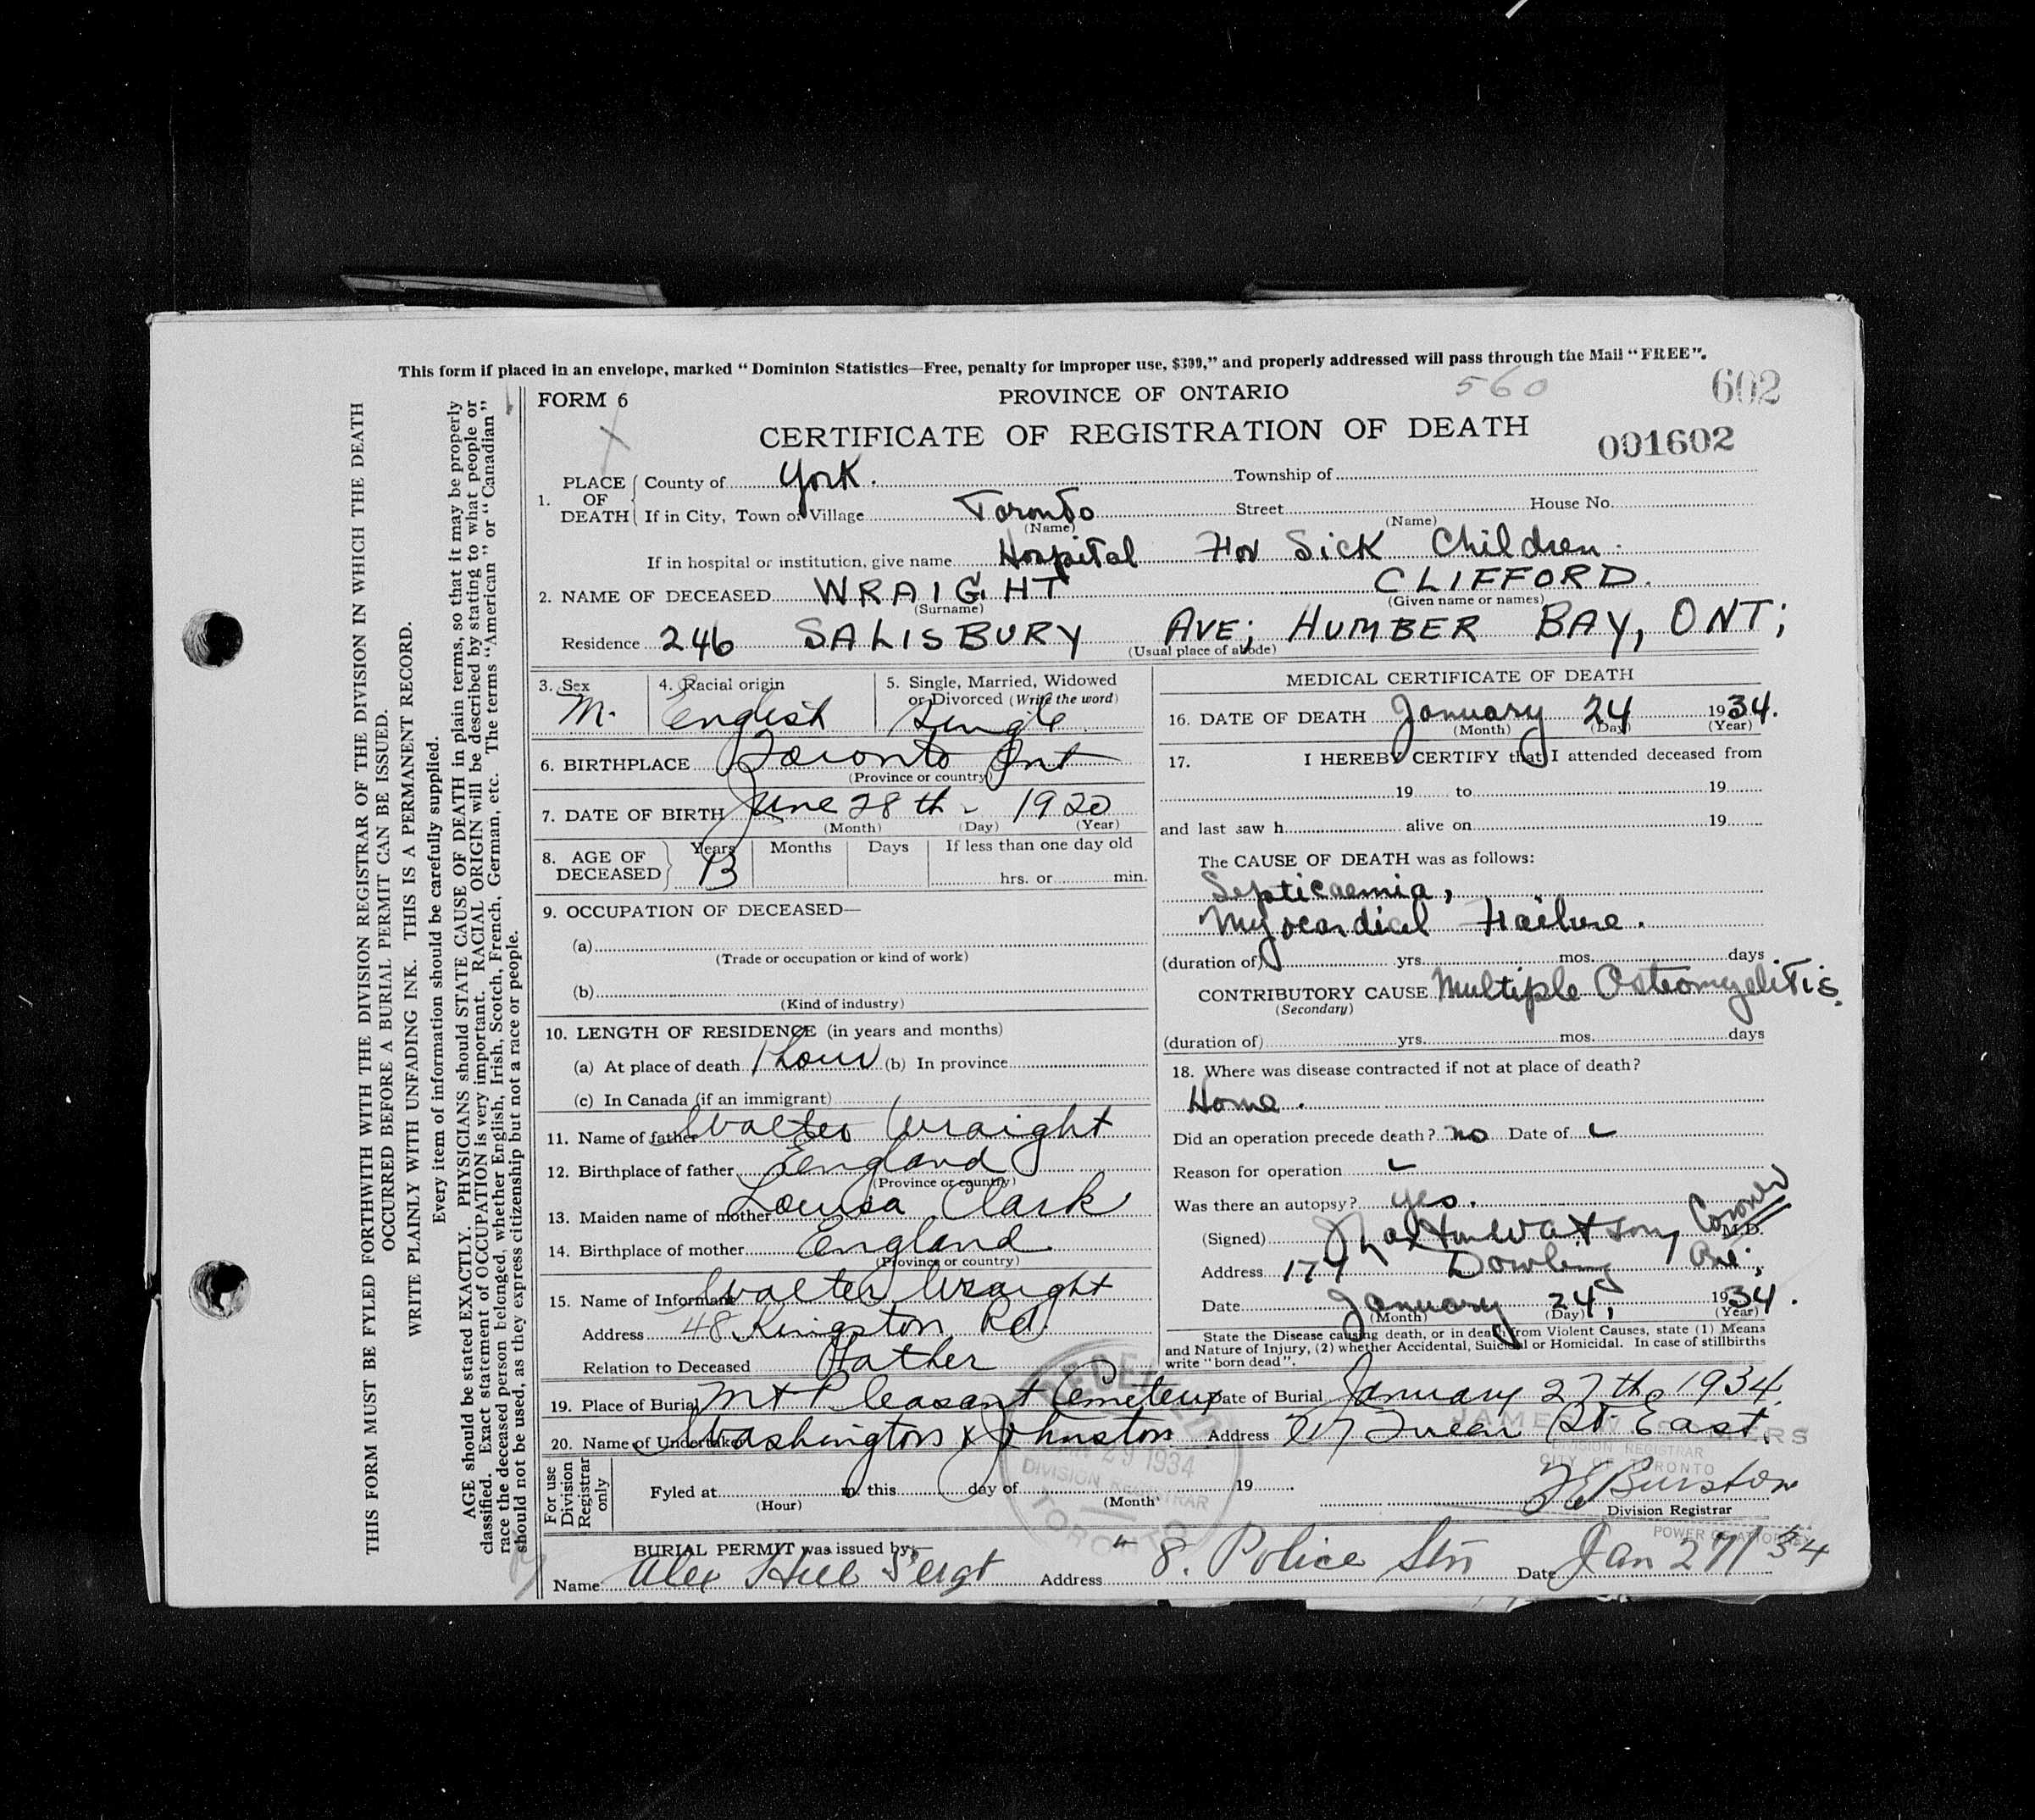 This form if placed in an envelope, marked "Dominion Statistics—Free, penalty for improper use, $300," and properly addressed will pass through the Mail "FREE".
THIS FORM MUST BE FYLED FORTHWITH WITH THE DIVISION REGISTRAR OF THE DIVISION IN WHICH THE DEATH
OCCURRED BEFORE A BURIAL PERMIT CAN BE ISSUED.
WRITE PLAINLY WITH UNFADING INK. THIS IS A PERMANENT RECORD.
Every item of information should be carefully supplied.
AGE should be stated EXACTLY. PHYSICIANS should STATE CAUSE OF DEATH in plain terms, so that it may be properly
classified. Exact statement of OCCUPATION is very important. RACIAL ORIGIN will be described by stating to what people or
race the deceased person belonged, whether English, Irish, Scotch, French, German, etc. The terms "American" or "Canadian"
should not be used, as they express citizenship but not a race or people.
FORM 6 PROVINCE OF ONTARIO 560 602
CERTIFICATE OF REGISTRATION OF DEATH 001602
1. PLACE OF DEATH County of York. Township of
If in City, Town or Village Toronto Street House No.
(Name) (Name)
If in hospital or institution, give name Hospital For Sick Children.
2. NAME OF DECEASED WRAIGHT CLIFFORD.
(Surname) (Given name or names)
Residence 246 SALISBURY AVE; HUMBER BAY, ONT;
(Usual place of abode)
3. Sex M. 4. Racial origin English 5. Single, Married, Widowed or Divorced (Write the word) Single
6. BIRTHPLACE Toronto Ont
(Province or country)
7. DATE OF BIRTH June 28th - 1920
(Month) (Day) (Year)
8. AGE OF DECEASED Years 13 Months Days If less than one day old
hrs. or min.
9. OCCUPATION OF DECEASED—
(a)
(Trade or occupation or kind of work)
(b)
(Kind of industry)
10. LENGTH OF RESIDENCE (in years and months)
(a) At place of death 1 hour (b) In province
(c) In Canada (if an immigrant)
11. Name of father Walter Wraight
12. Birthplace of father England
(Province or country)
13. Maiden name of mother Louisa Clark
14. Birthplace of mother England
(Province or country)
15. Name of Informant Walter Wraight
Address 48 Kingston Rd
Relation to Deceased Father
MEDICAL CERTIFICATE OF DEATH
16. DATE OF DEATH January 24 1934.
(Month) (Day) (Year)
17. I HEREBY CERTIFY that I attended deceased from
19 to 19
and last saw h alive on 19
The CAUSE OF DEATH was as follows:
Septicaemia,
Myocardial Failure.
(duration of) yrs. mos. days
CONTRIBUTORY CAUSE Multiple Osteomyelitis.
(Secondary)
(duration of) yrs. mos. days
18. Where was disease contracted if not at place of death?
Home.
Did an operation precede death? no Date of
Reason for operation
Was there an autopsy? yes.
(Signed) Watson, Coroner M.D.
Address 174 Dowling Ave;
Date January 24, 1934.
(Month) (Day) (Year)
State the Disease causing death, or in death from Violent Causes, state (1) Means
and Nature of Injury, (2) whether Accidental, Suicidal or Homicidal. In case of stillbirths
write "born dead".
19. Place of Burial Mt Pleasant Cemetery Date of Burial January 27th 1934.
20. Name of Undertaker Washington & Johnston Address Queen St East.
RECEIVED
29 1934
DIVISION REGISTRAR
TORONTO
DIVISION REGISTRAR
CITY OF TORONTO
For use Division Registrar only
Fyled at m. this day of 19
(Hour) (Month)
Burston
Division Registrar
POWER OF ATTORNEY
BURIAL PERMIT was issued by—
Name Alex Hill Sergt Address 8. Police Stn Date Jan 27/34